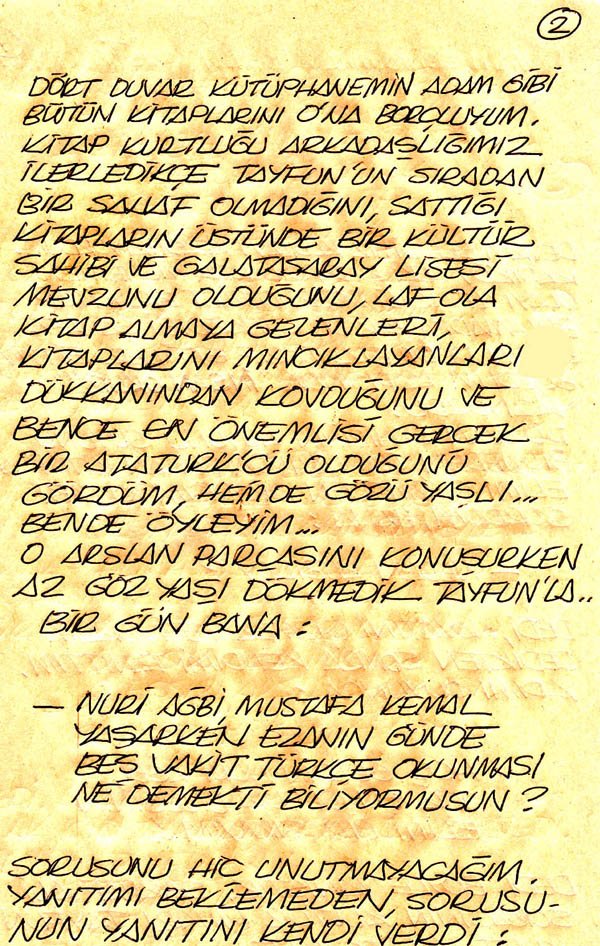 2
DÖRT DUVAR KÜTÜPHANEMİN ADAM GİBİ
BÜTÜN KİTAPLARINI O'NA BORÇLUYUM.
KİTAP KURTLUĞU ARKADAŞLIĞIMIZ
İLERLEDİKÇE TAYFUN'UN SIRADAN
BİR SAHAF OLMADIĞINI, SATTIĞI
KİTAPLARIN ÜSTÜNDE BİR KÜLTÜR
SAHİBİ VE GALATASARAY LİSESİ
MEVZUNU OLDUĞUNU, LAF OLA
KİTAP ALMAYA GELENLERİ,
KİTAPLARINI MINCIKLAYANLARI
DÜKKANINDAN KOVDUĞUNU VE
BENCE EN ÖNEMLİSİ GERÇEK
BİR ATATÜRK'ÇÜ OLDUĞUNU
GÖRDÜM, HEM DE GÖZÜ YAŞLI...
BENDE ÖYLEYİM...
O ARSLAN PARÇASINI KONUŞURKEN
AZ GÖZ YAŞI DÖKMEDİK TAYFUN'LA..
BİR GÜN BANA :
— NURİ AĞBİ, MUSTAFA KEMAL
YAŞARKEN EZANIN GÜNDE
BEŞ VAKİT TÜRKÇE OKUNMASI
NE DEMEKTİ BİLİYORMUSUN ?
SORUSUNU HİÇ UNUTMAYACAĞIM.
YANITIMI BEKLEMEDEN, SORUSU-
NUN YANITINI KENDİ VERDİ :